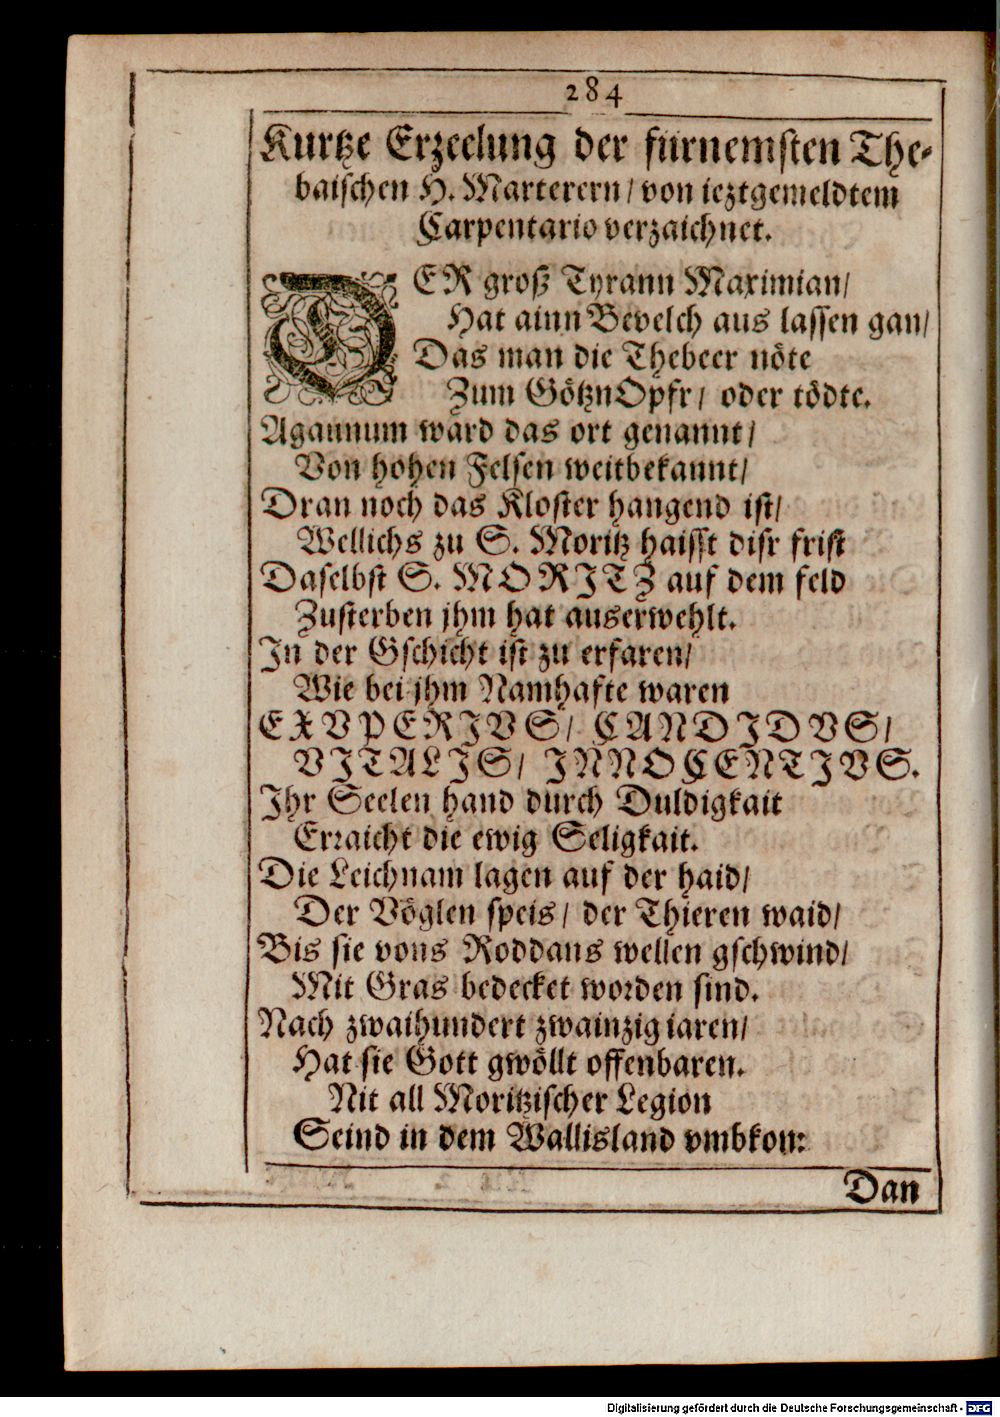 284
Kurtze Erzeelung der fürnemsten The-
baischen H. Marterern/ von ieztgemeldtem
Carpentario verzaichnet.
DER groß Tyrann Maximian/
Hat ainn Bevelch aus lassen gan/
Das man die Thebeer nöte
Zum GötznOpfr/ oder tödte.
Agaunum ward das ort genannt/
Von hohen Felsen weitbekannt/
Dran noch das Kloster hangend ist/
Wellichs zu S. Moritz haisst disr frist
Daselbst S. MORITZ auf dem feld
Zusterben jhm hat auserwehlt.
In der Gschicht ist zu erfaren/
Wie bei jhm Namhafte waren
EXVPERIVS/ CANDIDVS/
VITALIS/ INNOCENTIVS.
Ihr Seelen hand durch Duldigkait
Erraicht die ewig Seligkait.
Die Leichnam lagen auf der haid/
Der Vöglen speis/ der Thieren waid/
Bis sie vons Roddans wellen gschwind/
Mit Gras bedecket worden sind.
Nach zwaihundert zwainzig iaren/
Hat sie Gott gwöllt offenbaren.
Nit all Moritzischer Legion
Seind in dem Wallisland vmbkon:
Dan
Digitalisierung gefördert durch die Deutsche Forschungsgemeinschaft - DFG